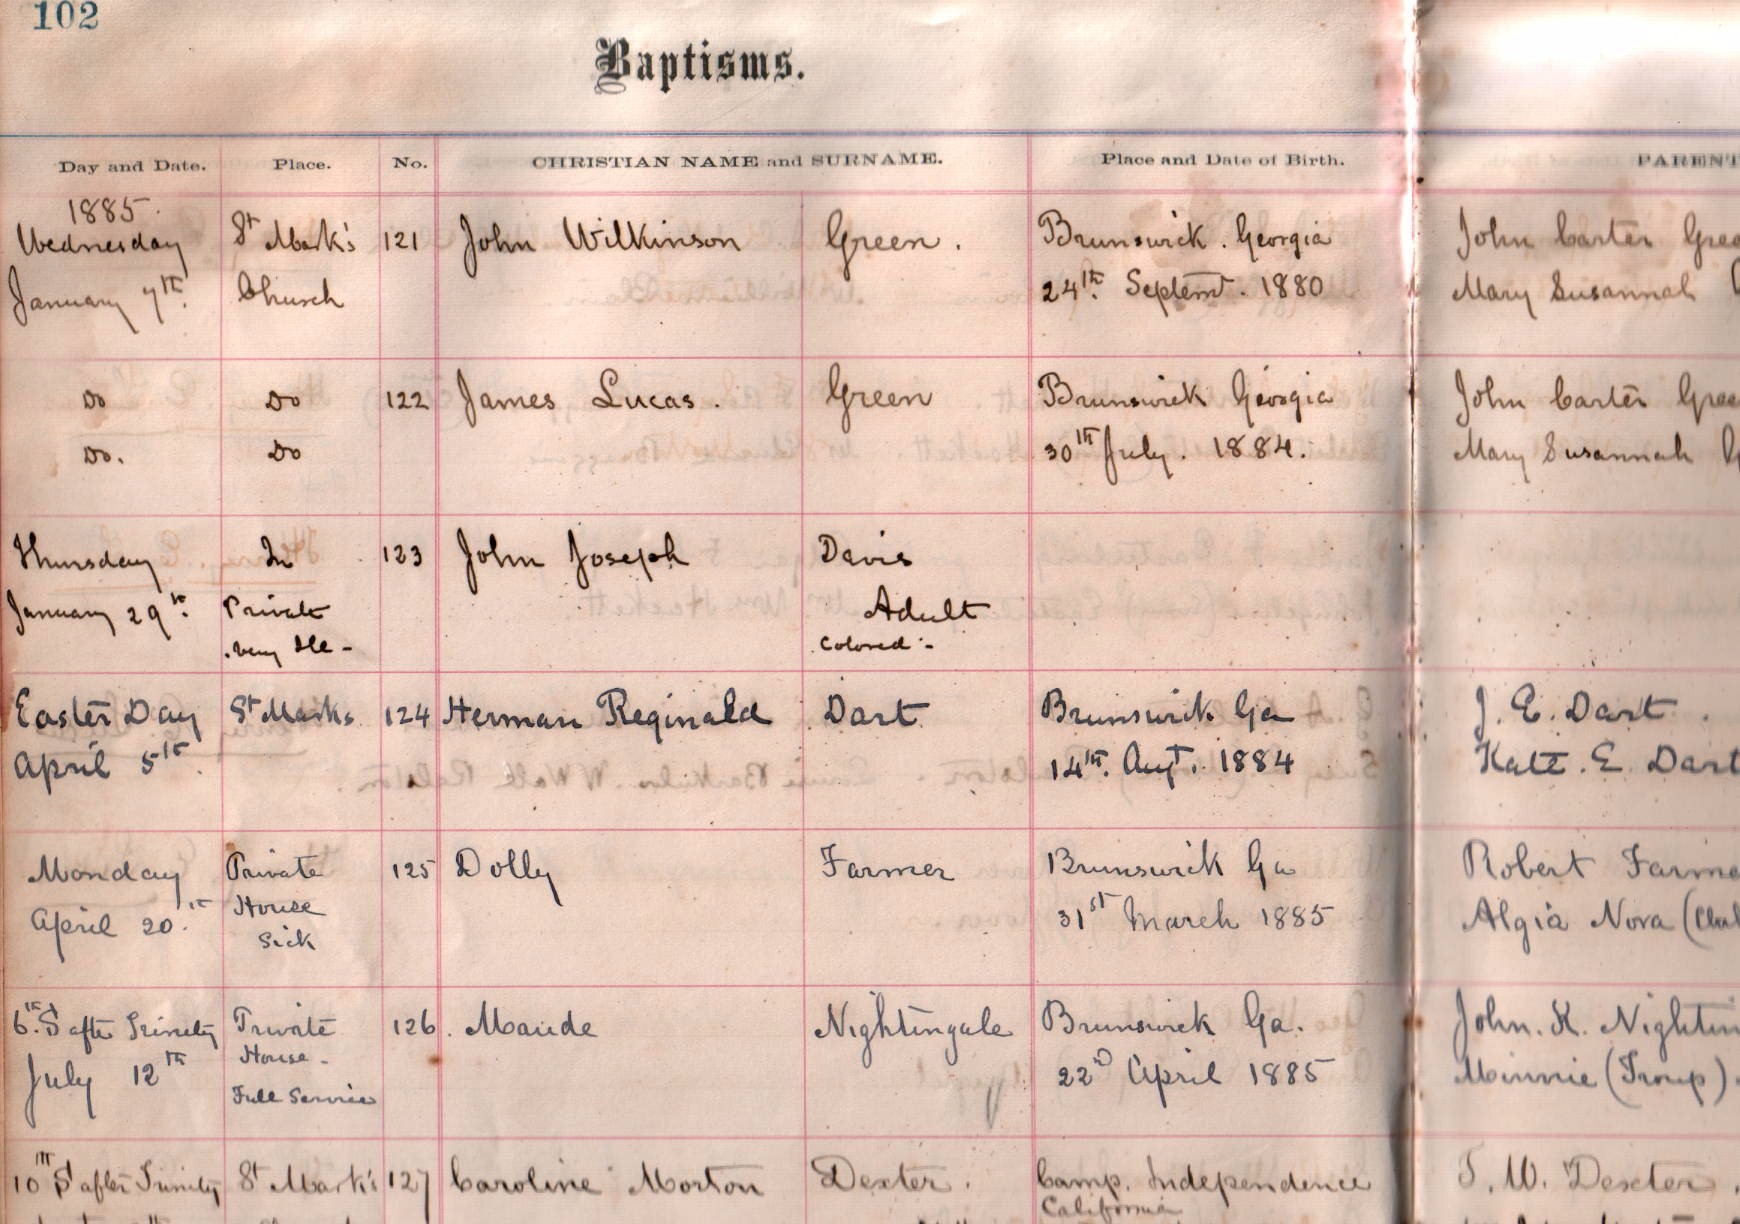 102
Baptisms.
Day and Date. Place. No. CHRISTIAN NAME and SURNAME. Place and Date of Birth. PARENT
1885.
Wednesday St Mark's 121 John Wilkinson Green. Brunswick. Georgia John Carter Gree
January 7th. Church 24th. Septemr. 1880 Mary Susannah
Do Do 122 James Lucas. Green Brunswick Georgia John Carter Gree
Do. Do 30th July. 1884. Mary Susannah G
Thursday In 123 John Joseph Davis
January 29th. Private Adult
very Ill - Colored -
Easter Day St Marks 124 Herman Reginald Dart Brunswick Ga J. E. Dart.
April 5th. 14th. Augt. 1884 Kate. E Dart
Monday Private 125 Dolly Farmer Brunswick Ga Robert Farme
April 20th. House 31st March 1885 Algia Nova
Sick
6th. S after Trinity Private 126. Maude Nightingale Brunswick Ga. John. K. Nightin
July 12th House - 22D April 1885 Minnie (Troup)
Full Service
10th S after Trinity St Mark's 127 Caroline Morton Dexter. Camp. Independence S. W. Dexter.
California